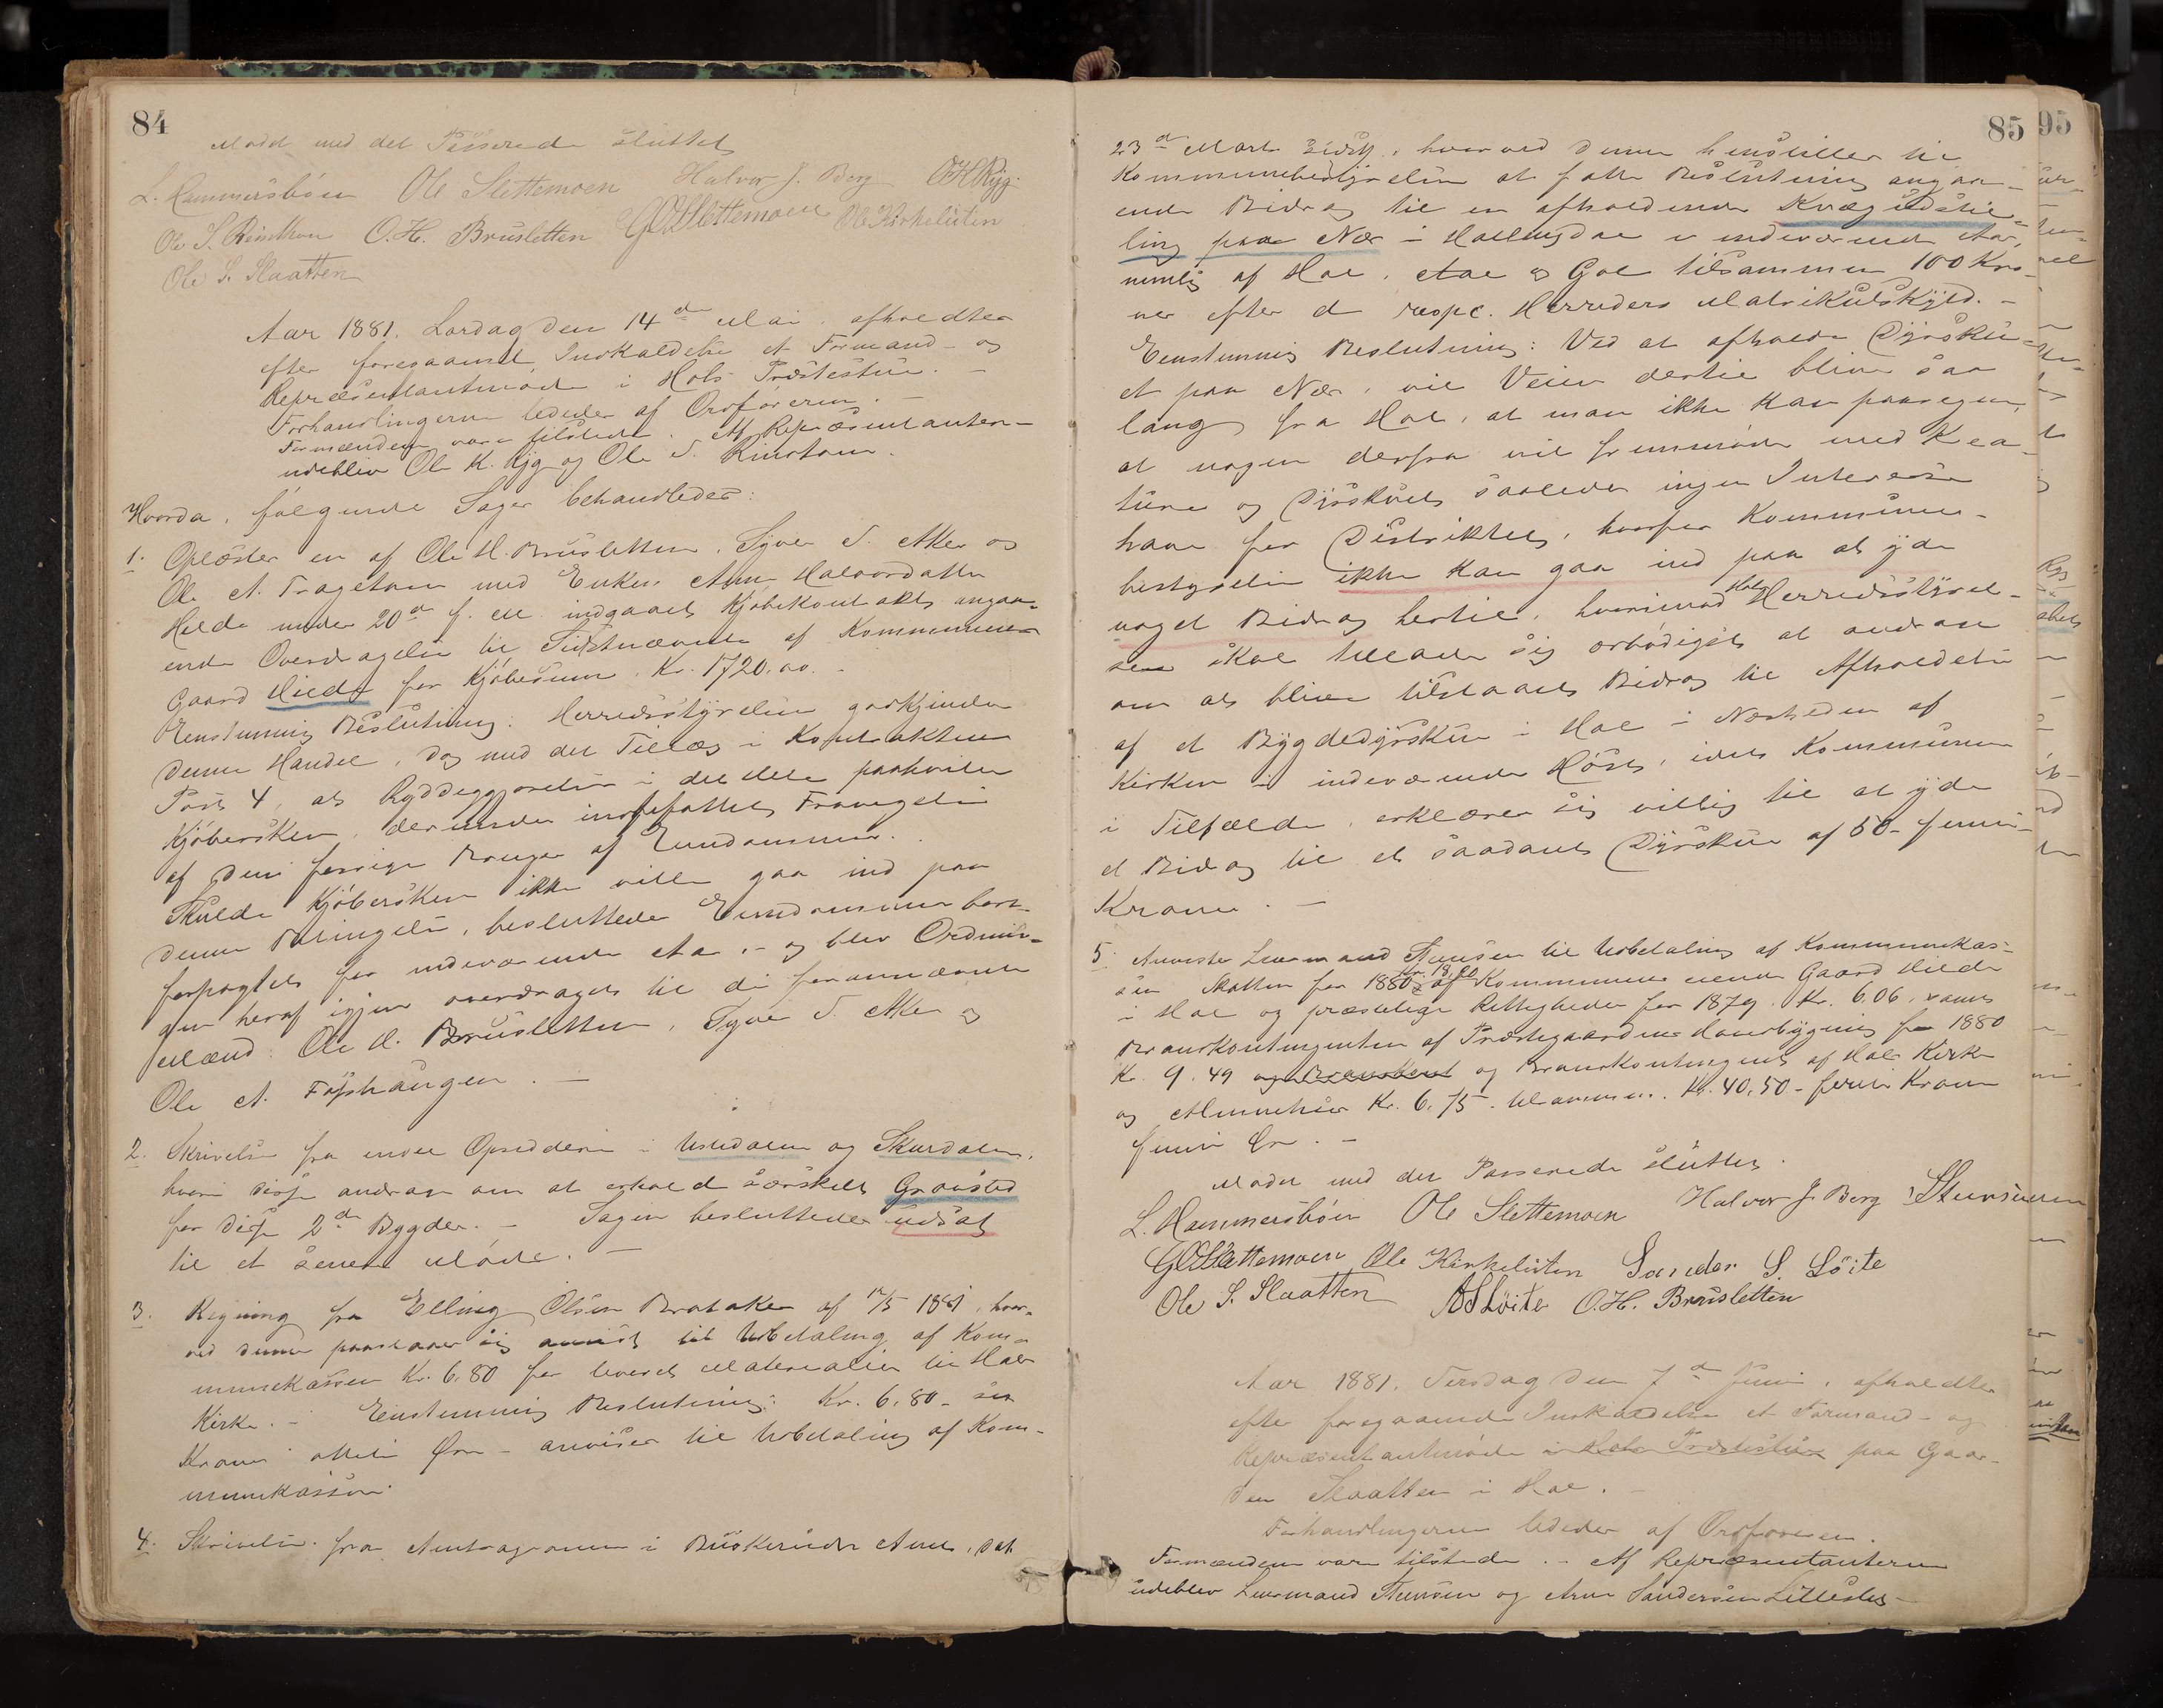 84
Mødet med det Passerede sluttet
L. Hammersbøen Ole Slettemoen Halvor J. Berg OKRyg.
O. H. Brusletten GOSlettemoen Ole Kirkeliiten
Ole S. Slaatten
Aar 1881. Lørdag den 14de Mai, afholdtes
efter foregaaende Indkaldelse et Formand- og
Repræsentantmøde i Hols Præstestue. -
Forhandlingerne lededes af Ordføreren. -
Formændene vare tilstede. Af Repræsentanter-
udeblev Ole K. Ryg og Ole S.
Hvorda, følgende Sager behandledes:
1. Oplæstes en af Ole H. Brusletten, Syver S. Aker og
Ole A. Tragetom med Enken Anne Halvordatter
Hilde under 20de f. M. indgaaet Kjøbekontrakt angaa-
ende Overdragelse til Sidstnævnte af Kommunens
Gaard Hilde for Kjøbesum Kr. 1720.00. -
Eenstemmig Beslutning: Herredsstyrelsen godkjender
denne Handel, dog med det Tillæg i Kontraktens
Post 4, at Ryddiggjørelsen i det Hele paahviler
Kjøbersken, derunder indbefattet Fravigelse
af den forrige Bruger af Eiendommen.
Skulde Kjøbersken ikke ville gaa ind paa
denne Betingelse, besluttedes Eiendommen bort-
forpagtet for indeværende Aar, - og blev Ordnin-
gen heraf igjen overdraget til de forannævnte
Mænd: Ole H. Brusletten, Syver S. Aker og
Ole A.
2. Skrivelse fra endel Opsiddere i Ustedalen og Skurdalen,
hvori disse andrage om at erholde særskilt Gravsted
for disse 2de Bygder. - Sagen besluttedes udsat
til et senere Møde. -
3. Regning fra Elling Olsen Brataker af 12/5 1881, hvor-
ved denne paastaaer sig anvist til Udbetaling af Kom-
munekassen Kr. 6.80 for leveret Materialier til Hols
Kirke. - Eenstemmig Beslutning: Kr. 6.80 - sex
Kroner otteti Øre - anvises til Udbetaling af Kom-
munekassen.
4. Skrivelse fra Amtsagronomen i Buskeruds Amt, dat.
85
23de Marts sidstl., hvorved denne henstiller til
Kommunebestyrelsen at fatte Beslutning angaa-
ende Bidrag til en afholdende Kvægudstil-
ling paa Næs i Hallingdal i indeværende Aar,
nemlig af Hol, Aal og Gol tilsammen 100 Kro-
ner efter de respc. Herreders Matrikulskyld. -
Eenstemmig Beslutning: Ved at afholde Dyrsku-
et paa Næs, vil Veien dertil blive saa
lang fra Hol, at man ikke kan paaregne,
at nogen derfra vil fremmøde med Krea-
ture og Dyrskuet saaledes ingen Interesse
have for Distriktet, hvorfor Kommune-
bestyrelsen ikke kan gaa ind paa at yde
noget Bidrag hertil, hvorimod Hols Herredsstyrel-
sen skal tillade sig ærbødigst at andrage
om at blive tilstaaet Bidrag til Afholdelse
af et Bygdedyrskue i Hol i Nærheden af
Kirken i indeværende Høst, idet Kommunen
i Tilfælde, erklærer sig villig til at yde
et Bidrag til et saadant Dyrskue af 50 - femti-
Kroner. -
5. Anvistes Lensmand Steensen til Udbetaling af Kommunekas-
sen Skatten for 1880 Kr. 18,20 af Kommunens eiende Gaard Hilde
i Hol og præstelige Rettigheder for 1879. Kr. 6.06, samt
Brandkontingenten af Præstegaardens Hovedbygning for 1880
Kr. 9.49 og Brandkontingent af Hols Kirke
og Almuehuus Kr. 6.75. Tilsammen. Kr. 40.50 - førti Kroner
femti Øre. -
Mødet med det Passerede sluttet.
L. Hammersbøen Ole Slettemoen Halvor J. Berg
GOSlettemoen Ole Kirkeliiten Sander S. Løite
Ole S. Slaatten ASLøite O. H. Brusletten
Aar 1881. Tirsdag den 7de Juni, afholdtes
efter foregaaende Indkaldelse et Formand- og
Repræsentantmøde i Hols Præstestue paa Gaar-
den Slaatten i Hol. -
Forhandlingerne lededes af Ordføreren.
Formændene vare tilstede. - Af Repræsentanterne
udeblev Lensmand Steensen og Arne Sandersen Lilleslet-
95